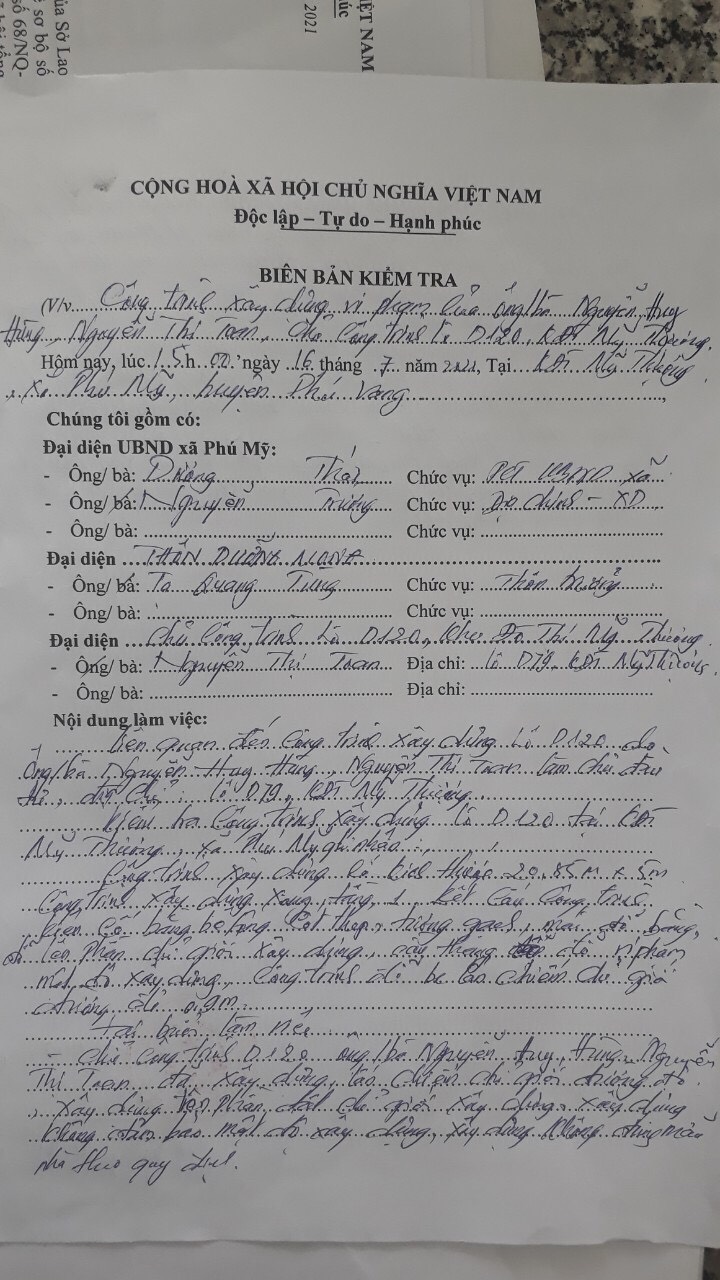 ủa Sở Lao
sơ bộ số
số 68/NQ-
IỆT NAM
úc
2021
CỘNG HOÀ XÃ HỘI CHỦ NGHĨA VIỆT NAM
Độc lập – Tự do – Hạnh phúc
BIÊN BẢN KIỂM TRA
(V/v Công trình xây dựng vi phạm của ông/bà Nguyễn Huy
Hùng, Nguyễn Thị Toan, Chủ Công trình lô D120, KĐT Mỹ Thượng.
Hôm nay, lúc 15 h 00 'ngày 16 tháng 7 năm 2021, Tại KĐT Mỹ Thượng
, xã Phú Mỹ, huyện Phú Vang
Chúng tôi gồm có:
Đại diện UBND xã Phú Mỹ:
- Ông/ bà: Dương Thái Chức vụ: PCT UBND xã
- Ông/ bà: Nguyễn Trường Chức vụ: Địa chính - XD
- Ông/ bà: Chức vụ:
Đại diện THÔN DƯỠNG MONG
- Ông/ bà: Tạ Quang Tùng Chức vụ: Thôn trưởng
- Ông/ bà: Chức vụ:
Đại diện Chủ Công trình Lô D120, Khu Đô Thị Mỹ Thượng
- Ông/ bà: Nguyễn Thị Toan Địa chỉ: lô D79, KĐT Mỹ Thượng
- Ông/ bà: Địa chỉ:
Nội dung làm việc:
Liên quan đến Công trình xây dựng Lô D120 do
Ông/bà Nguyễn Huy Hùng, Nguyễn Thị Toan làm chủ đầu
tư, địa chỉ: lô D79, KĐT Mỹ Thượng
Kiểm tra Công trình xây dựng lô D120 tại KĐT
Mỹ Thượng, xã Phú Mỹ ghi nhận:
Công trình xây dựng có kích thước 20.85m x 5m
Công trình xây dựng xong tầng 1, Kết cấu Công trình
kiên cố bằng bê tông Cốt thép, tường gạch, mái đổ bằng
lên phần chỉ giới xây dựng, cầu thang vi phạm
mật độ xây dựng, Công trình đã bị lấn chiếm chỉ giới
đường đỏ 0,9m.
Tại buổi làm việc
- Chủ Công trình D120 ông/bà Nguyễn Huy Hùng, Nguyễn
Thị Toan đã xây dựng lấn chiếm chỉ giới đường đỏ
, xây dựng trên phần đất chỉ giới xây dựng, xây dựng
không đảm bảo mật độ xây dựng, xây dựng không đúng mẫu
nhà theo quy định.